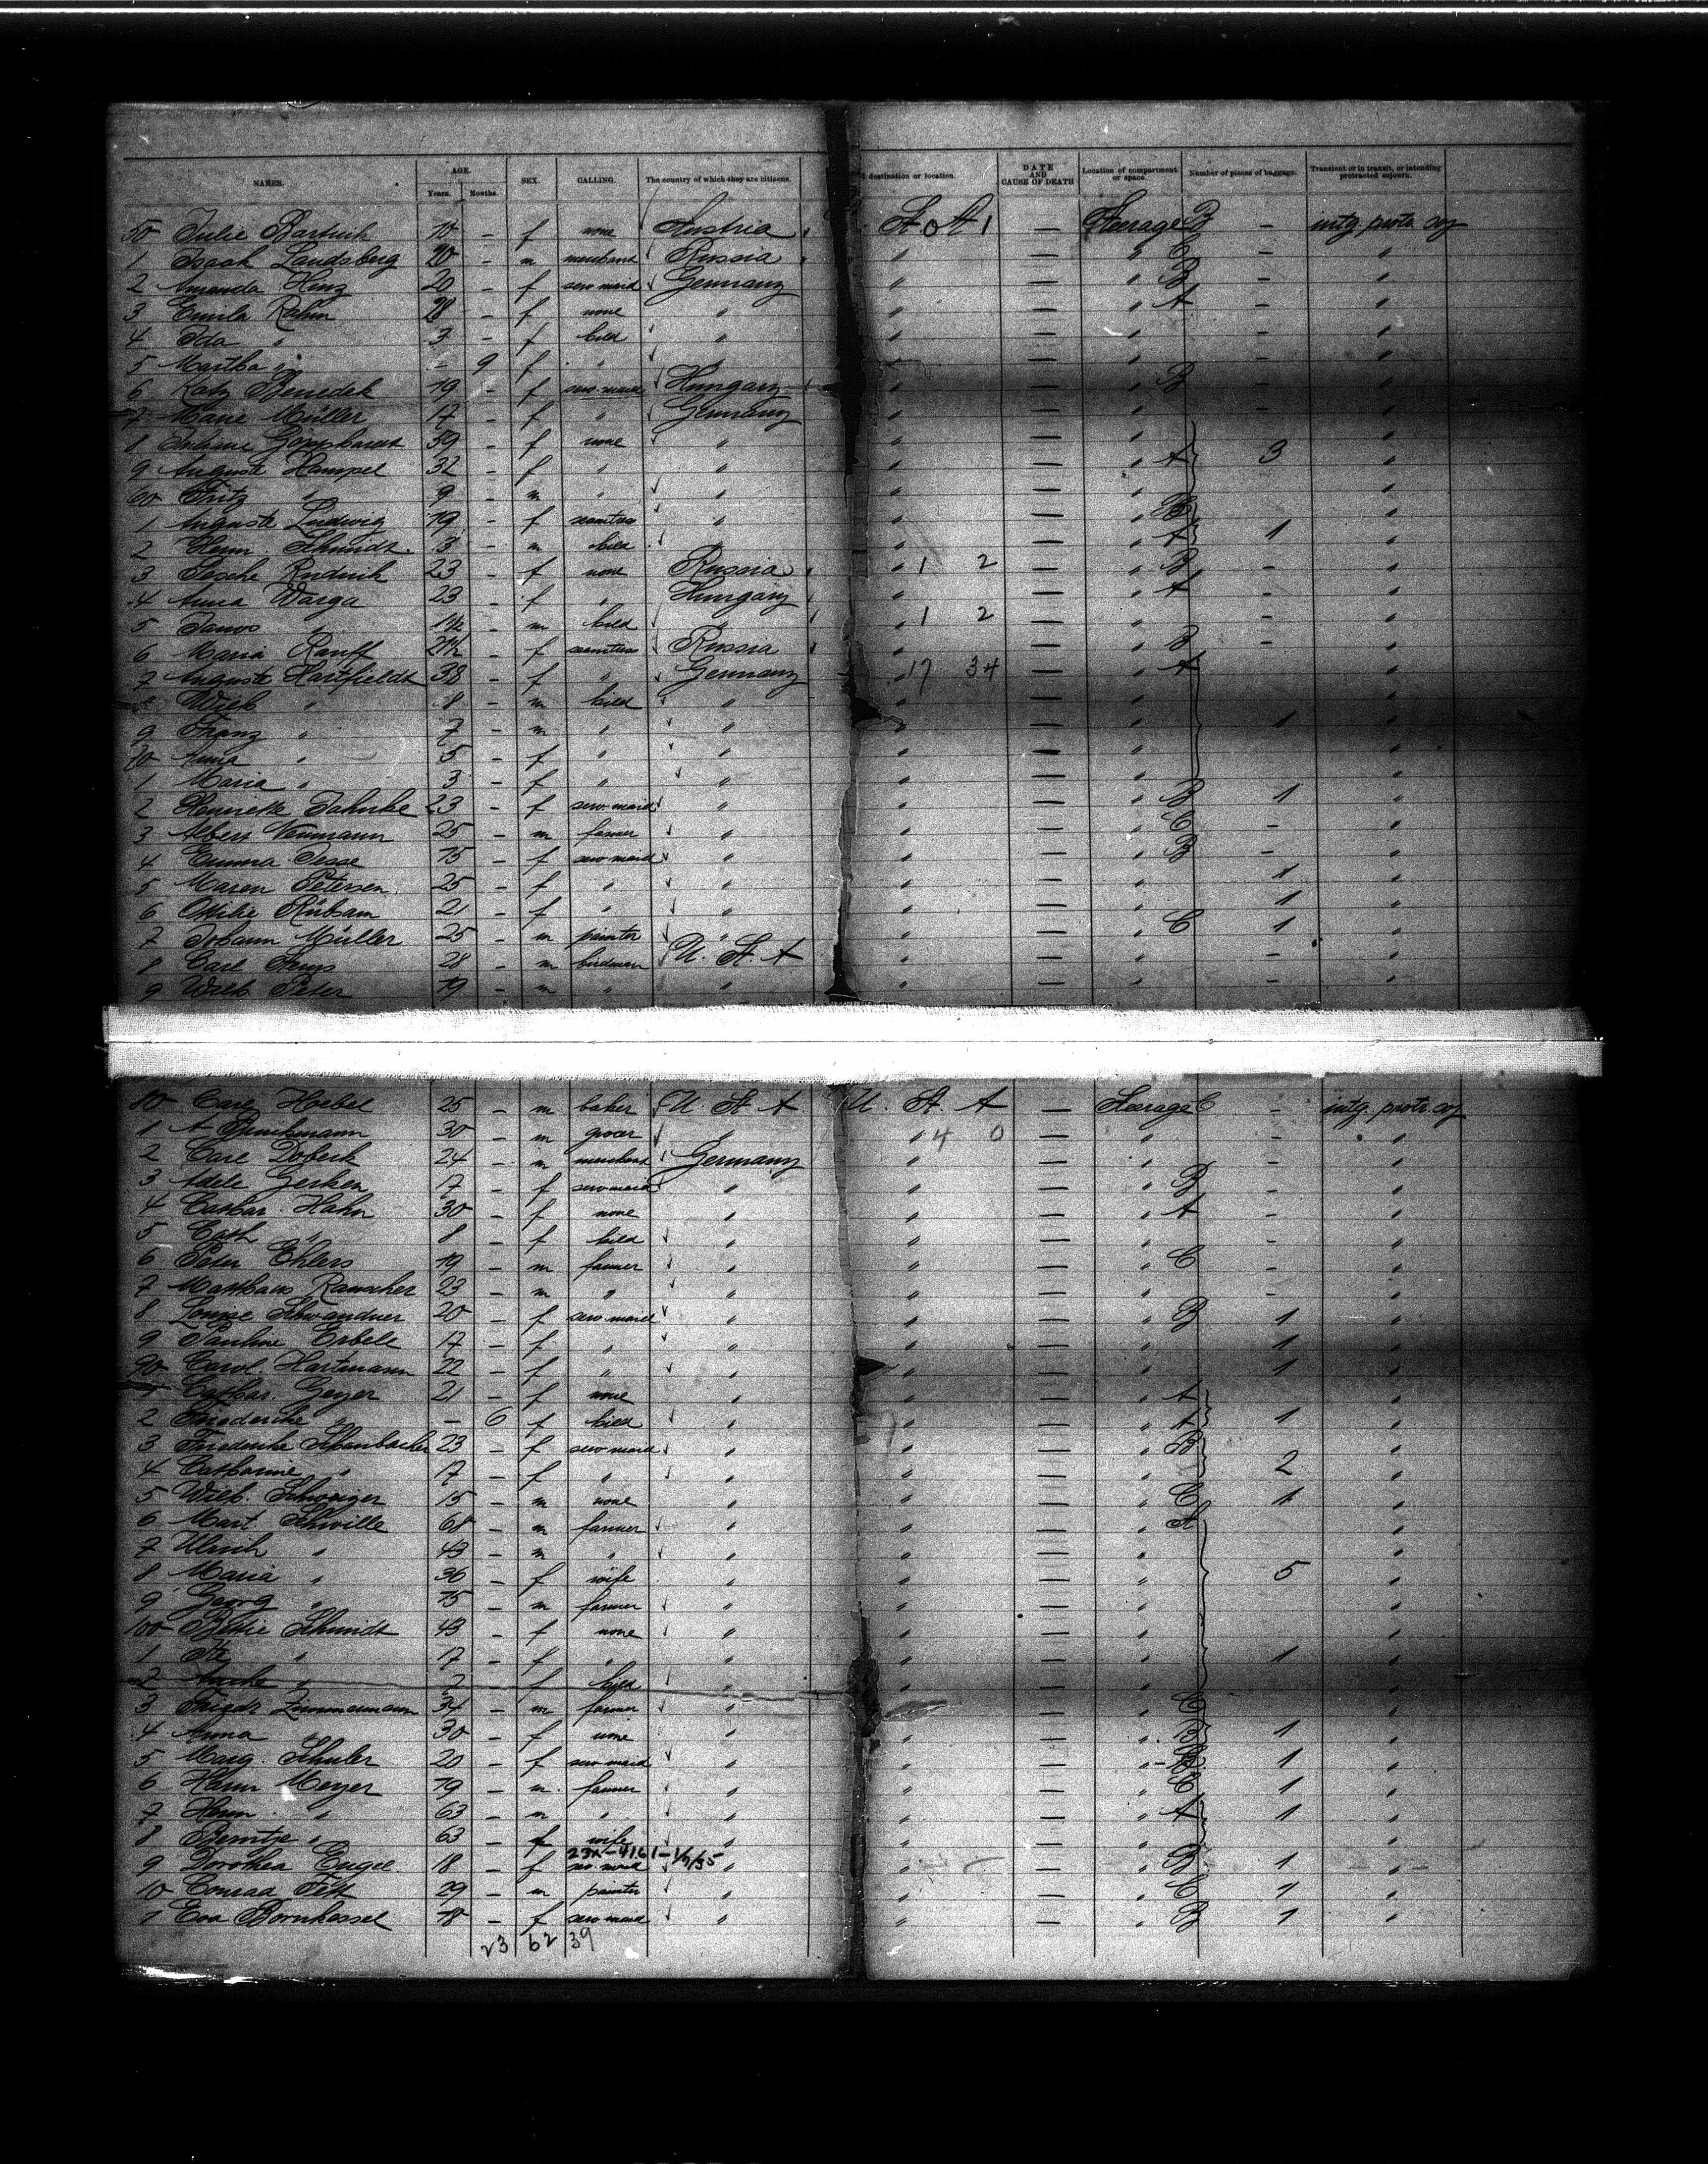 NAMES. AGE. Years. Months. SEX. CALLING. The country of which they are citizens. destination or location. DATE AND CAUSE OF DEATH Location of compartment or space. Number of pieces of baggage. Transient or in transit, or intending protracted sojourn.
50 Julie Bartnik 70 - f none Austria St. A 1 — Steerage B - intg. protr. soj
1 Isaak Landsberg 20 - m merchant Russia " — " C - "
2 Amanda Hinz 20 - f serv. maid Germany " — " B - "
3 Emila Rahn 28 - f none " " — " A - "
4 Ida " 3 - f child " " — " - "
5 Martha " - 9 f " " " — " - "
6 Katy Benedek 19 - f serv. maid Hungary " — " B - "
7 Marie Müller 17 - f " Germany " — " - "
8 59 - f none " " — " "
9 Auguste Hampel 32 - f " " " — " A 3 "
60 Fritz " 9 - m " " " — " "
1 Auguste Ludwig 19 - f seamtress " " — " B "
2 Herm. Schmidt 3 - m child " " — " A 1 "
3 Rudnik 23 - f none Russia " 1 2 — " B - "
4 Anna Varga 23 - f " Hungary " — " A - "
5 Janos " - m child " " 1 2 — " - "
6 Maria Rauff - f seamtress Russia " — " B - "
7 Auguste Hartfieldt 38 - f " Germany " 17 34 — " A "
8 Wilh " 8 - m child " " — " "
9 Franz " 7 - m " " " — " 1 "
70 Anna " 5 - f " " " — " "
1 Maria " 3 - f " " " — " "
2 Henrette Jahnke 23 - f serv. maid " " — " B 1 "
3 Albert Neumann 25 - m farmer " " — " C - "
4 Emma Jesse 15 - f serv maid " " — " B - "
5 Maren Petersen 25 - f " " " — " 1 "
6 Ottilie Rübsam 21 - f " " " — " 1 "
7 Johann Müller 25 - m painter " " — " C 1 "
8 Carl 28 - m birdman U. St. A " — " - "
9 Wilh. Peter 19 - m " " — " - "
80 Carl Hoebel 25 - m baker U. St. A U. St. A — Steerage C - intg. protr. soj
1 A 30 - m grocer " " 4 0 — " - "
2 Carl Dobeck 24 - m merchant Germany " — " - "
3 Adele Gerken 17 - f serv maid " " — " B - "
4 Cathar. Hahn 30 - f none " " — " A - "
5 Cath " 8 - f child " " — " - "
6 Peter Ehlers 19 - m farmer " " — " C - "
7 Matthaus Rauscher 23 - m " " " — " - "
8 Louise Schwandner 20 - f serv maid " " — " B 1 "
9 Pauline Erbele 17 - f " " " — " 1 "
90 Carol Hartmann 22 - f " " " — " 1 "
Cathar. Geyer 21 - f none " " — " A "
2 Friederike " - 6 f child " " — " A 1 "
3 Friederike 23 - f serv maid " " — " B "
4 Catharine " 17 - f " " " — " 2 "
5 Wilh. Schweiger 15 - m none " " — " C 1 "
6 Mart. Schwille 68 - m farmer " " — " A "
7 Ulrich " 43 - m " " " — " "
8 Maria " 36 - f wife " " — " 5 "
9 Georg " 15 - m farmer " " — " "
100 Bettie Schmidt 43 - f none " " — " "
1 " 17 - f " " " — " 1 "
2 " 2 f child " " — " "
3 Friedr Zimmermann 34 - m farmer " " — " C "
4 Anna " 30 - f none " " — " B 1 "
5 Marg. Schuler 20 - f serv maid " " — " B 1 "
6 Herm Meyer 19 - m. farmer " " — " C 1 "
7 Herm. " 63 - m " " " — " A 1 "
8 " 63 - f wife " " — " "
23X-4161-1/9/35
9 Dorothea Engel 18 - f ser. maid " " — " B 1 "
10 Conrad Fett 29 - m painter " " — " C 1 "
1 Eva Bornkessel 18 - f serv maid " " — " B 1 "
23 62 39